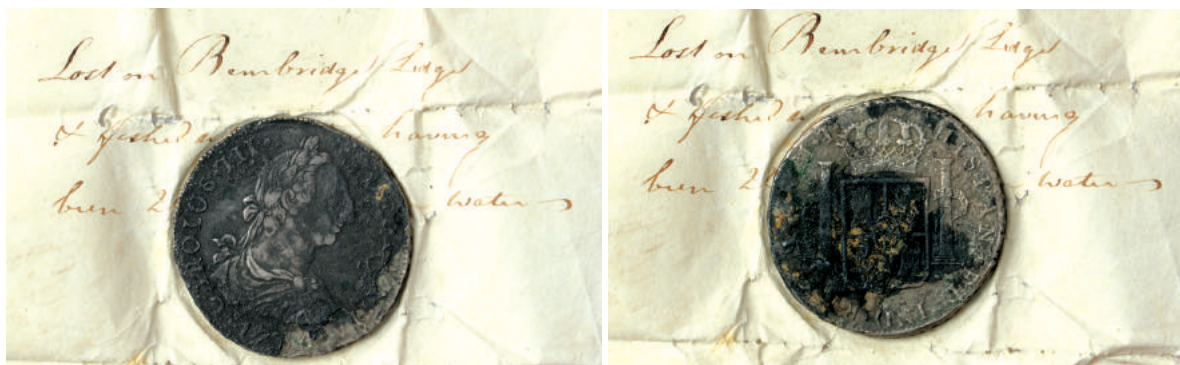 Lost on Bembridge Ledge
& fished having
been 2 water
CAROLUS III
Lost on Bembridge Ledge
& fished having
been 2 water
HISPAN